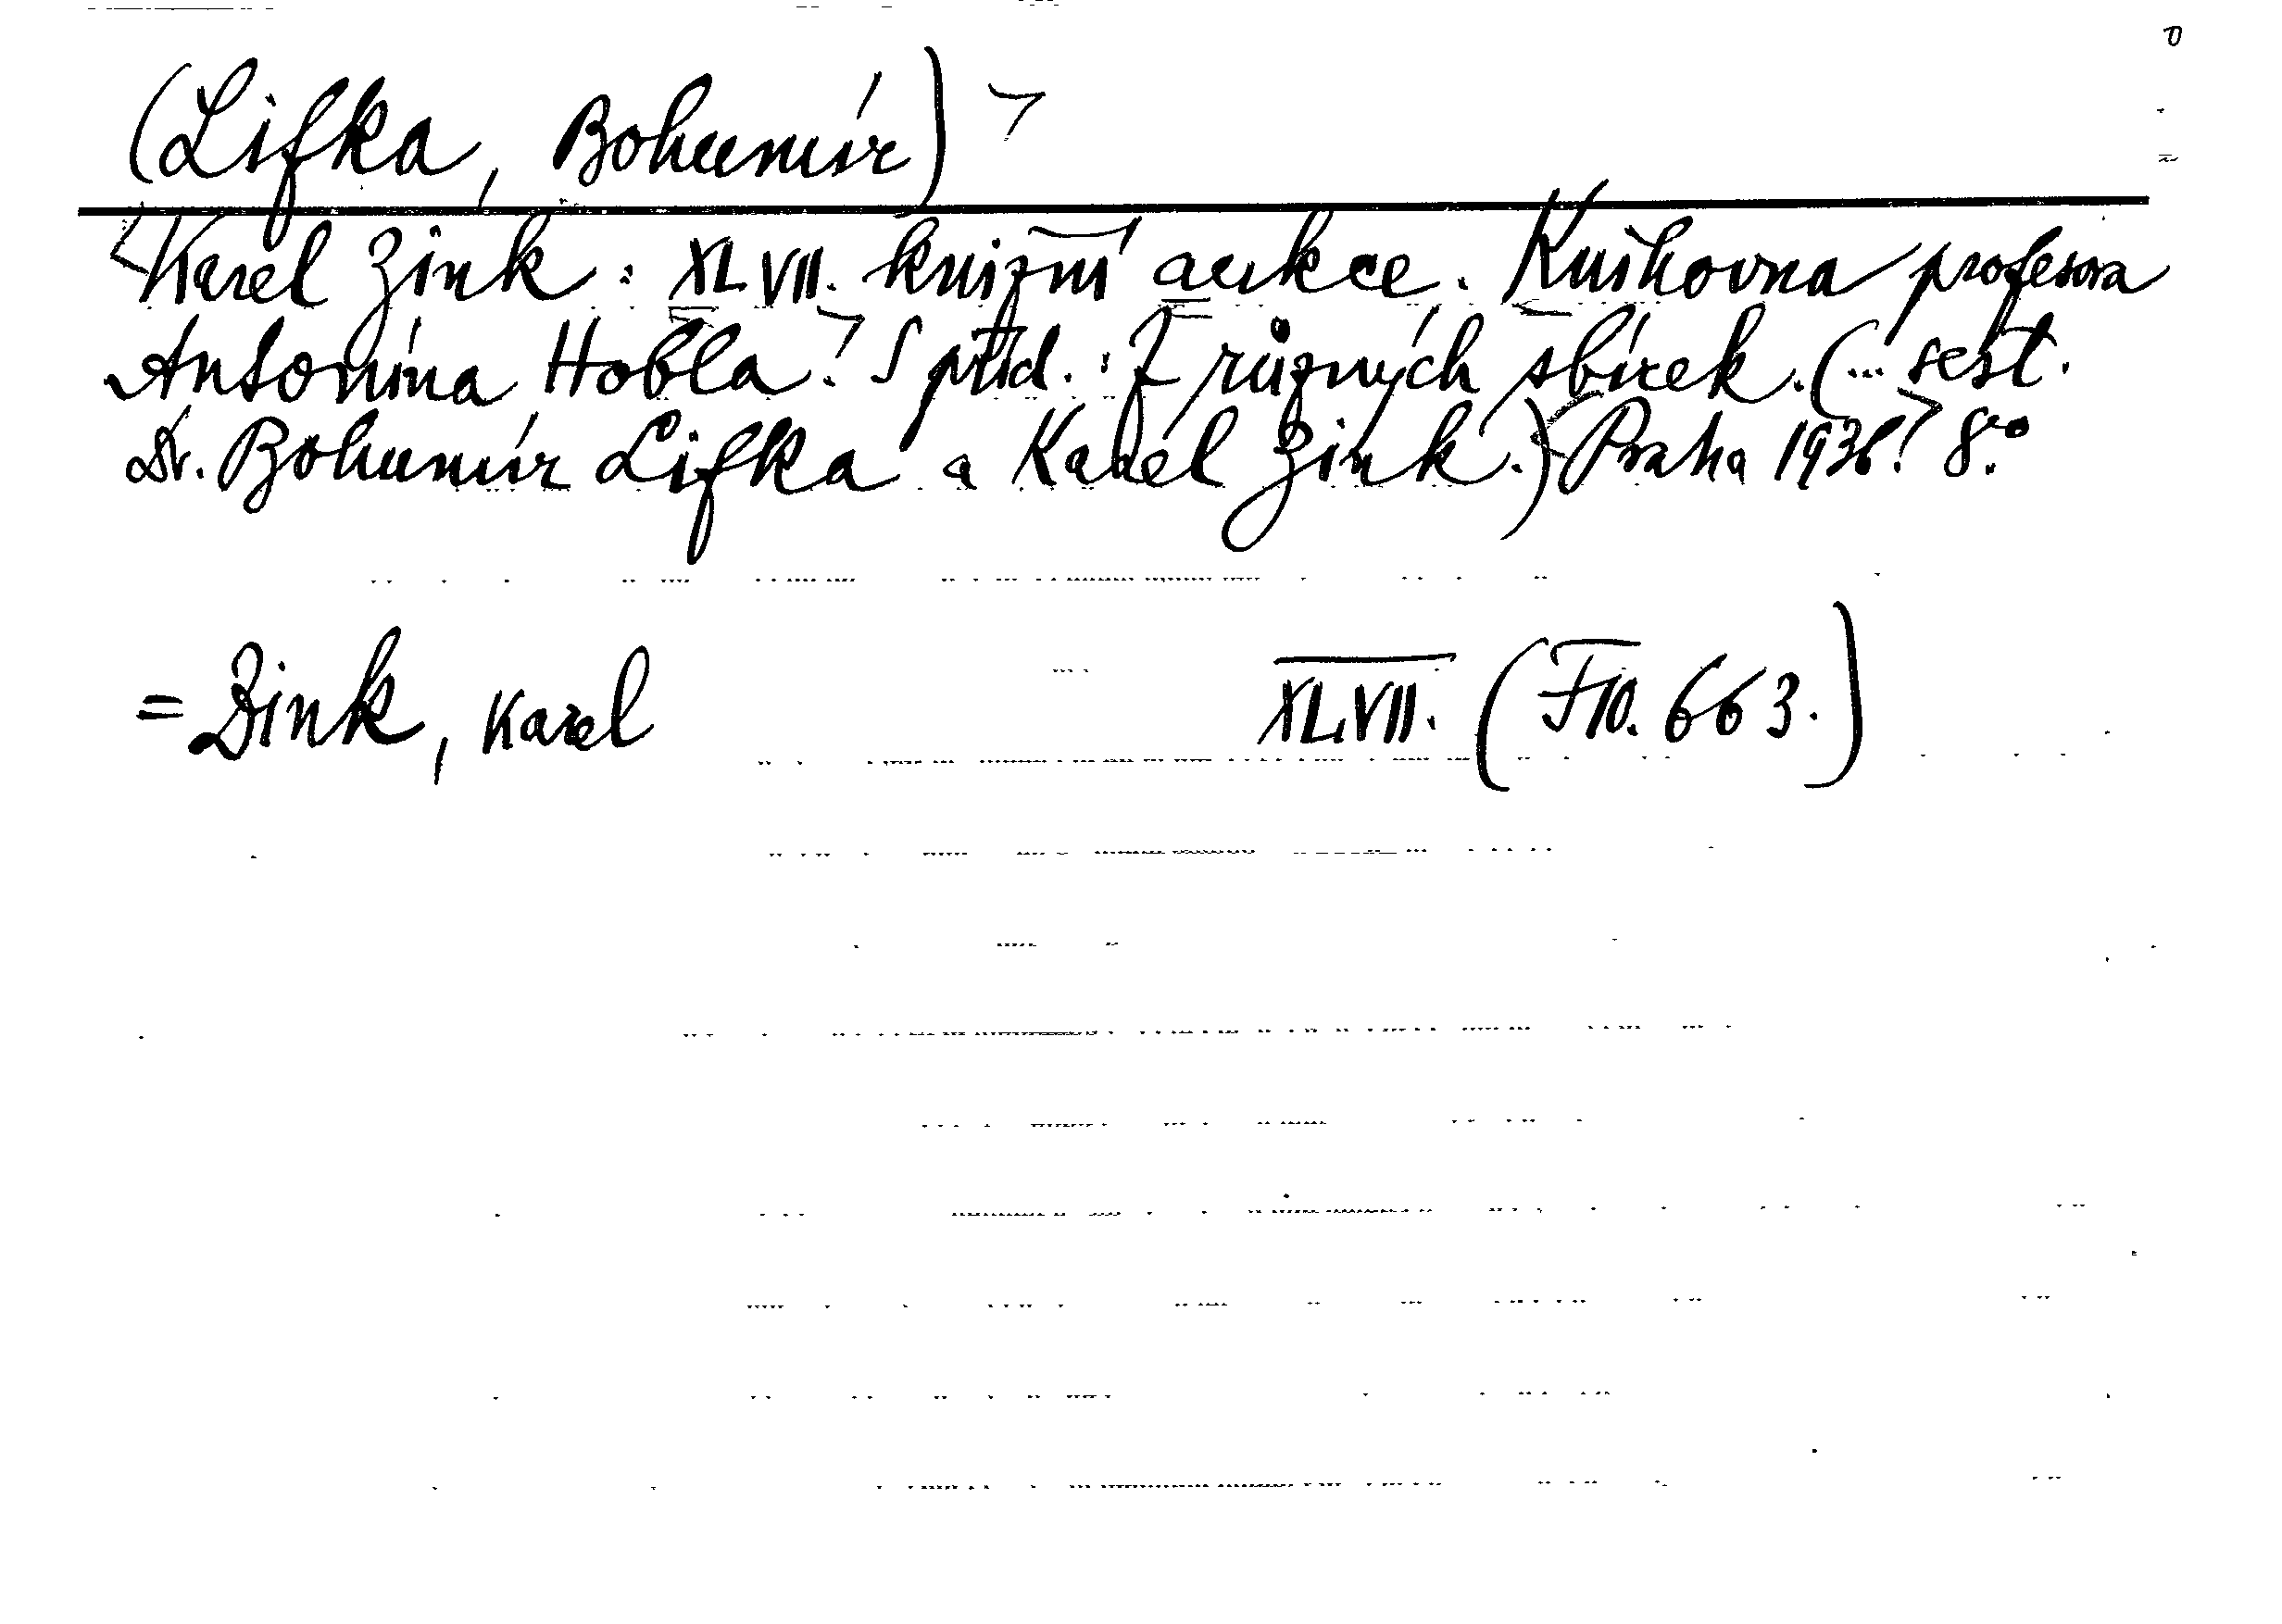 (Lifka, Bohumír)
Karel Zink: XLVII. knižní aukce. Knihovna profesora
Antonína Hobla. S příd.: Z různých sbírek. (... sest.
Dr. Bohumír Lifka a Karel Zink.) Praha 1936. 8.°
= Zink, Karel XLVII. (F10. 663.)